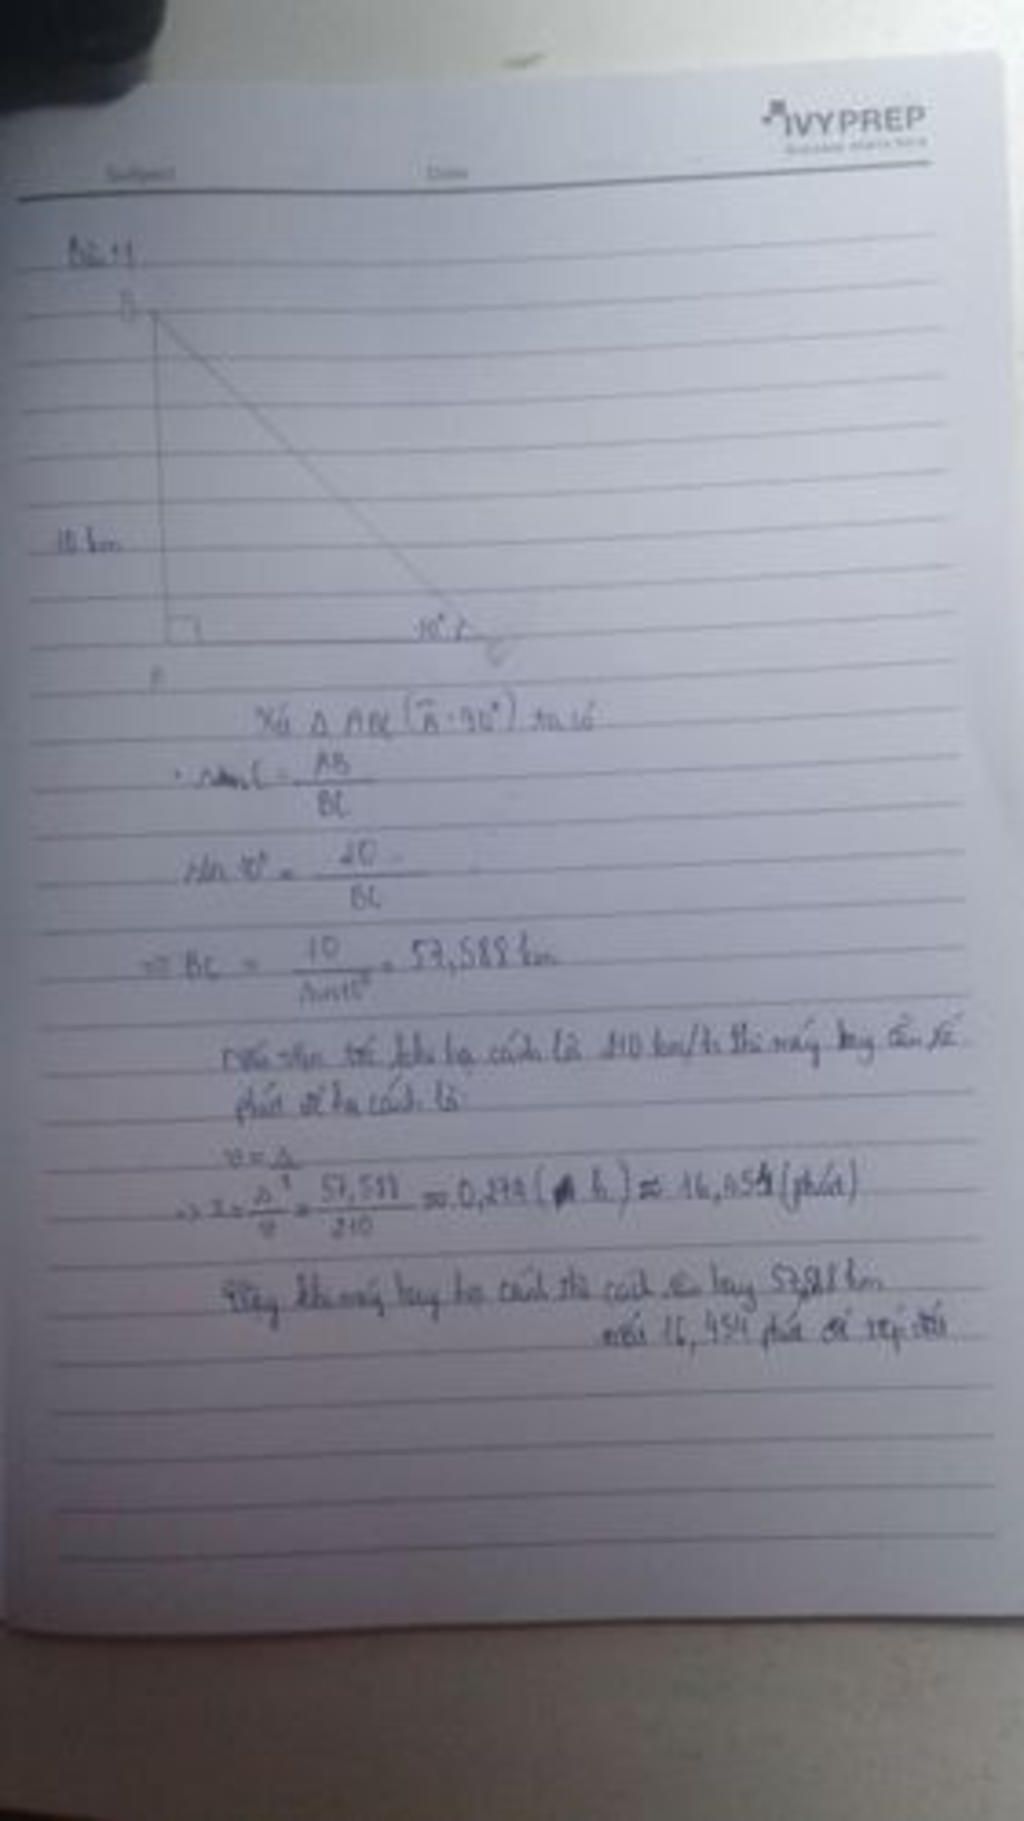 IVYPREP
Subject Date
Bài 11
B
10 km
10°
C
Xét Δ ABC (Â = 90°) ta có
sin C = AB / BC
sin 10° = 10 / BC
=> BC = 10 / sin 10° = 57,588 km
vận tốc khi hạ cánh là 210 km/h thì máy bay cần số
phút để hạ cánh là
v = s
57,588 / 210 ≈ 0,274 ( h ) ≈ 16,454 (phút)
Vậy khi máy bay hạ cánh thì bay km
16,454 phút để